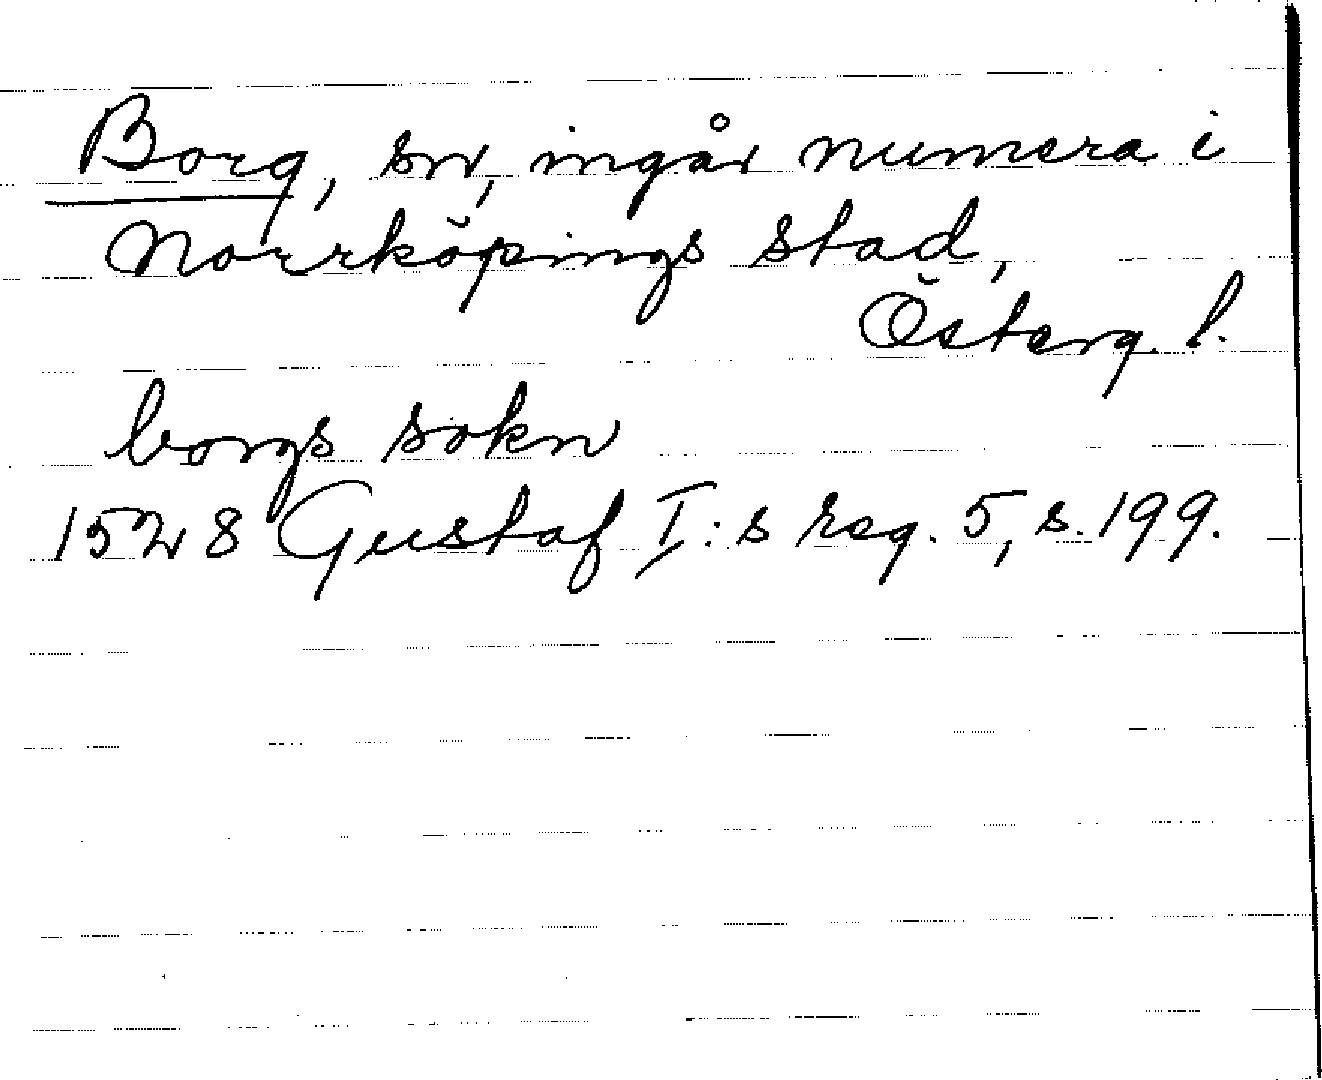 Borg, sn, ingår numera i
Norrköpings stad,
Österg. l.
borgs sokn
1528 Gustaf I:s reg. 5, s. 199.